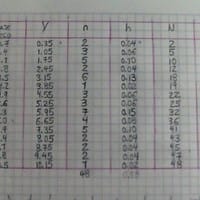 Y n h N
.7 0.35 2 0.04 2
.4 1.05 3 0.06 5
1.75 5 0.10 10
2.45 2 0.04 12
.5 3.15 6 0.13 18
.2 3.85 1 0.02 19
.9 4.55 3 0.06 22
.6 5.25 3 0.06 25
.3 5.95 7 0.15 32
.0 6.65 4 0.08 36
7.35 5 0.10 41
8.05 2 0.04 43
8.75 2 0.04 45
9.45 2 0.04 47
.5 10.15 1 0.02 48
48